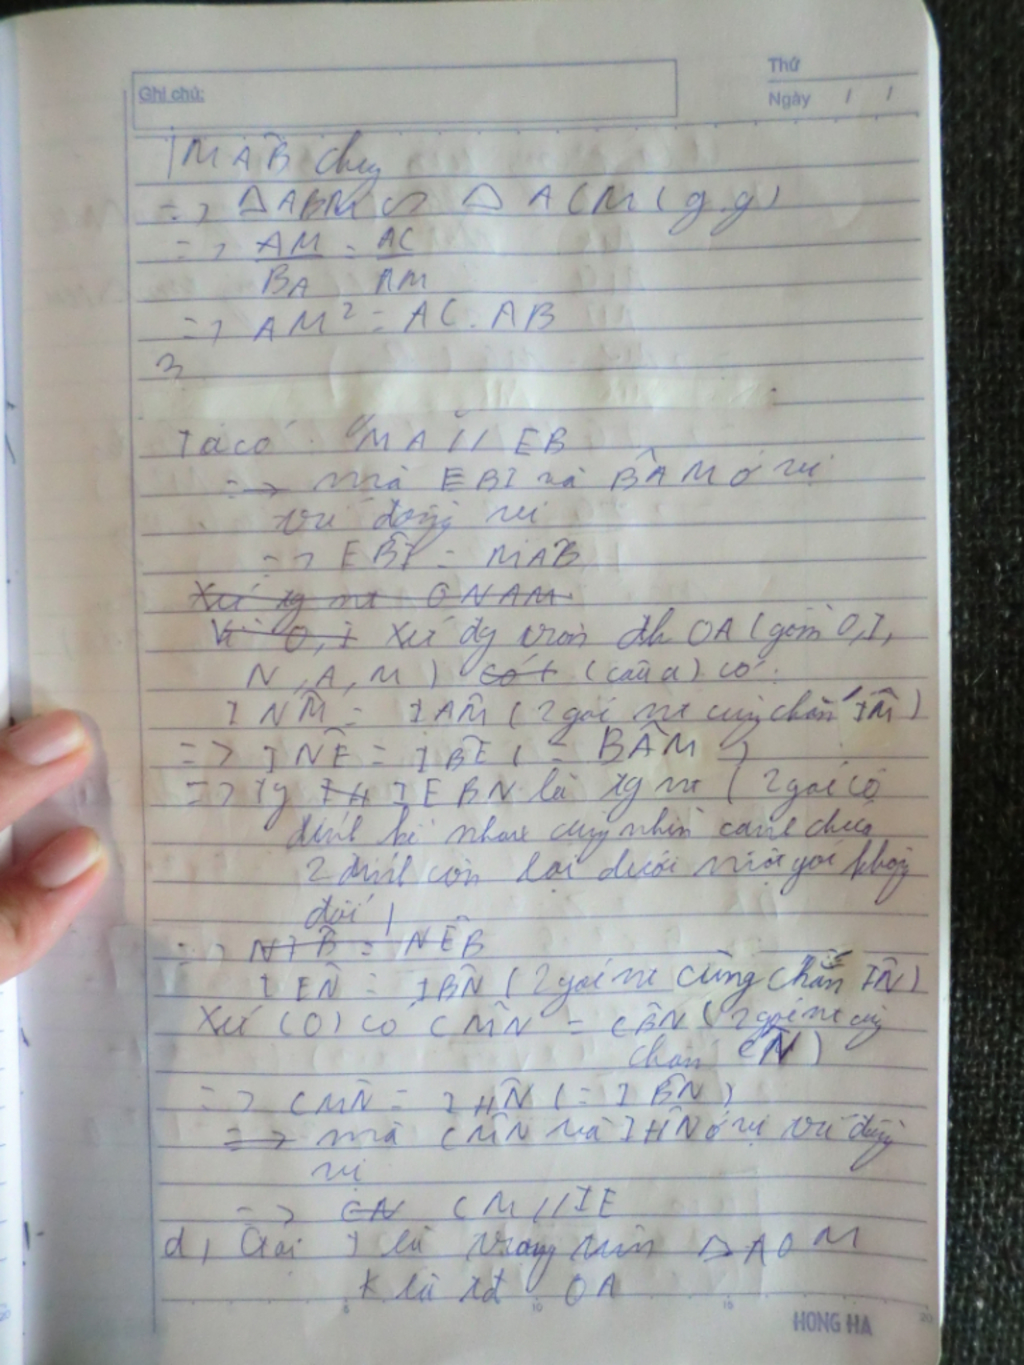 Ghi chú:
Thứ
Ngày / /
MAB chung
=> ΔABM ∽ ΔACM (g.g)
=> AM/BA = AC/AM
=> AM² = AC.AB
Ta có: MA // EB
=> mà EBI và BÂM ở vị
trí đồng vị
=> EBI = MAB
Xét tg nt ONAM
Vì O, I Xét đg tròn đk OA (gồm O, I,
N, A, M) (câu a) có:
INM = IAM (2 góc nt cùng chắn IM)
=> INE = IBE (= BÂM)
=> Tg IH IEBN là tg nt (2 góc có
đỉnh kề nhau cùng nhìn cạnh chứa
2 đỉnh còn lại dưới một góc không
đổi)
=> NIB = NEB
IEN = IBN (2 góc nt cùng chắn IN)
Xét (O) có CMN = CBN (2 góc nt cùng
chắn CN)
=> CMN = IHN (= IBN)
=> mà CMN và IHN ở vị trí đồng
vị
=> CN CM // IE
d, Gọi J là trọng tâm ΔAOM
K là tđ OA
5 10 15 20
HONG HA